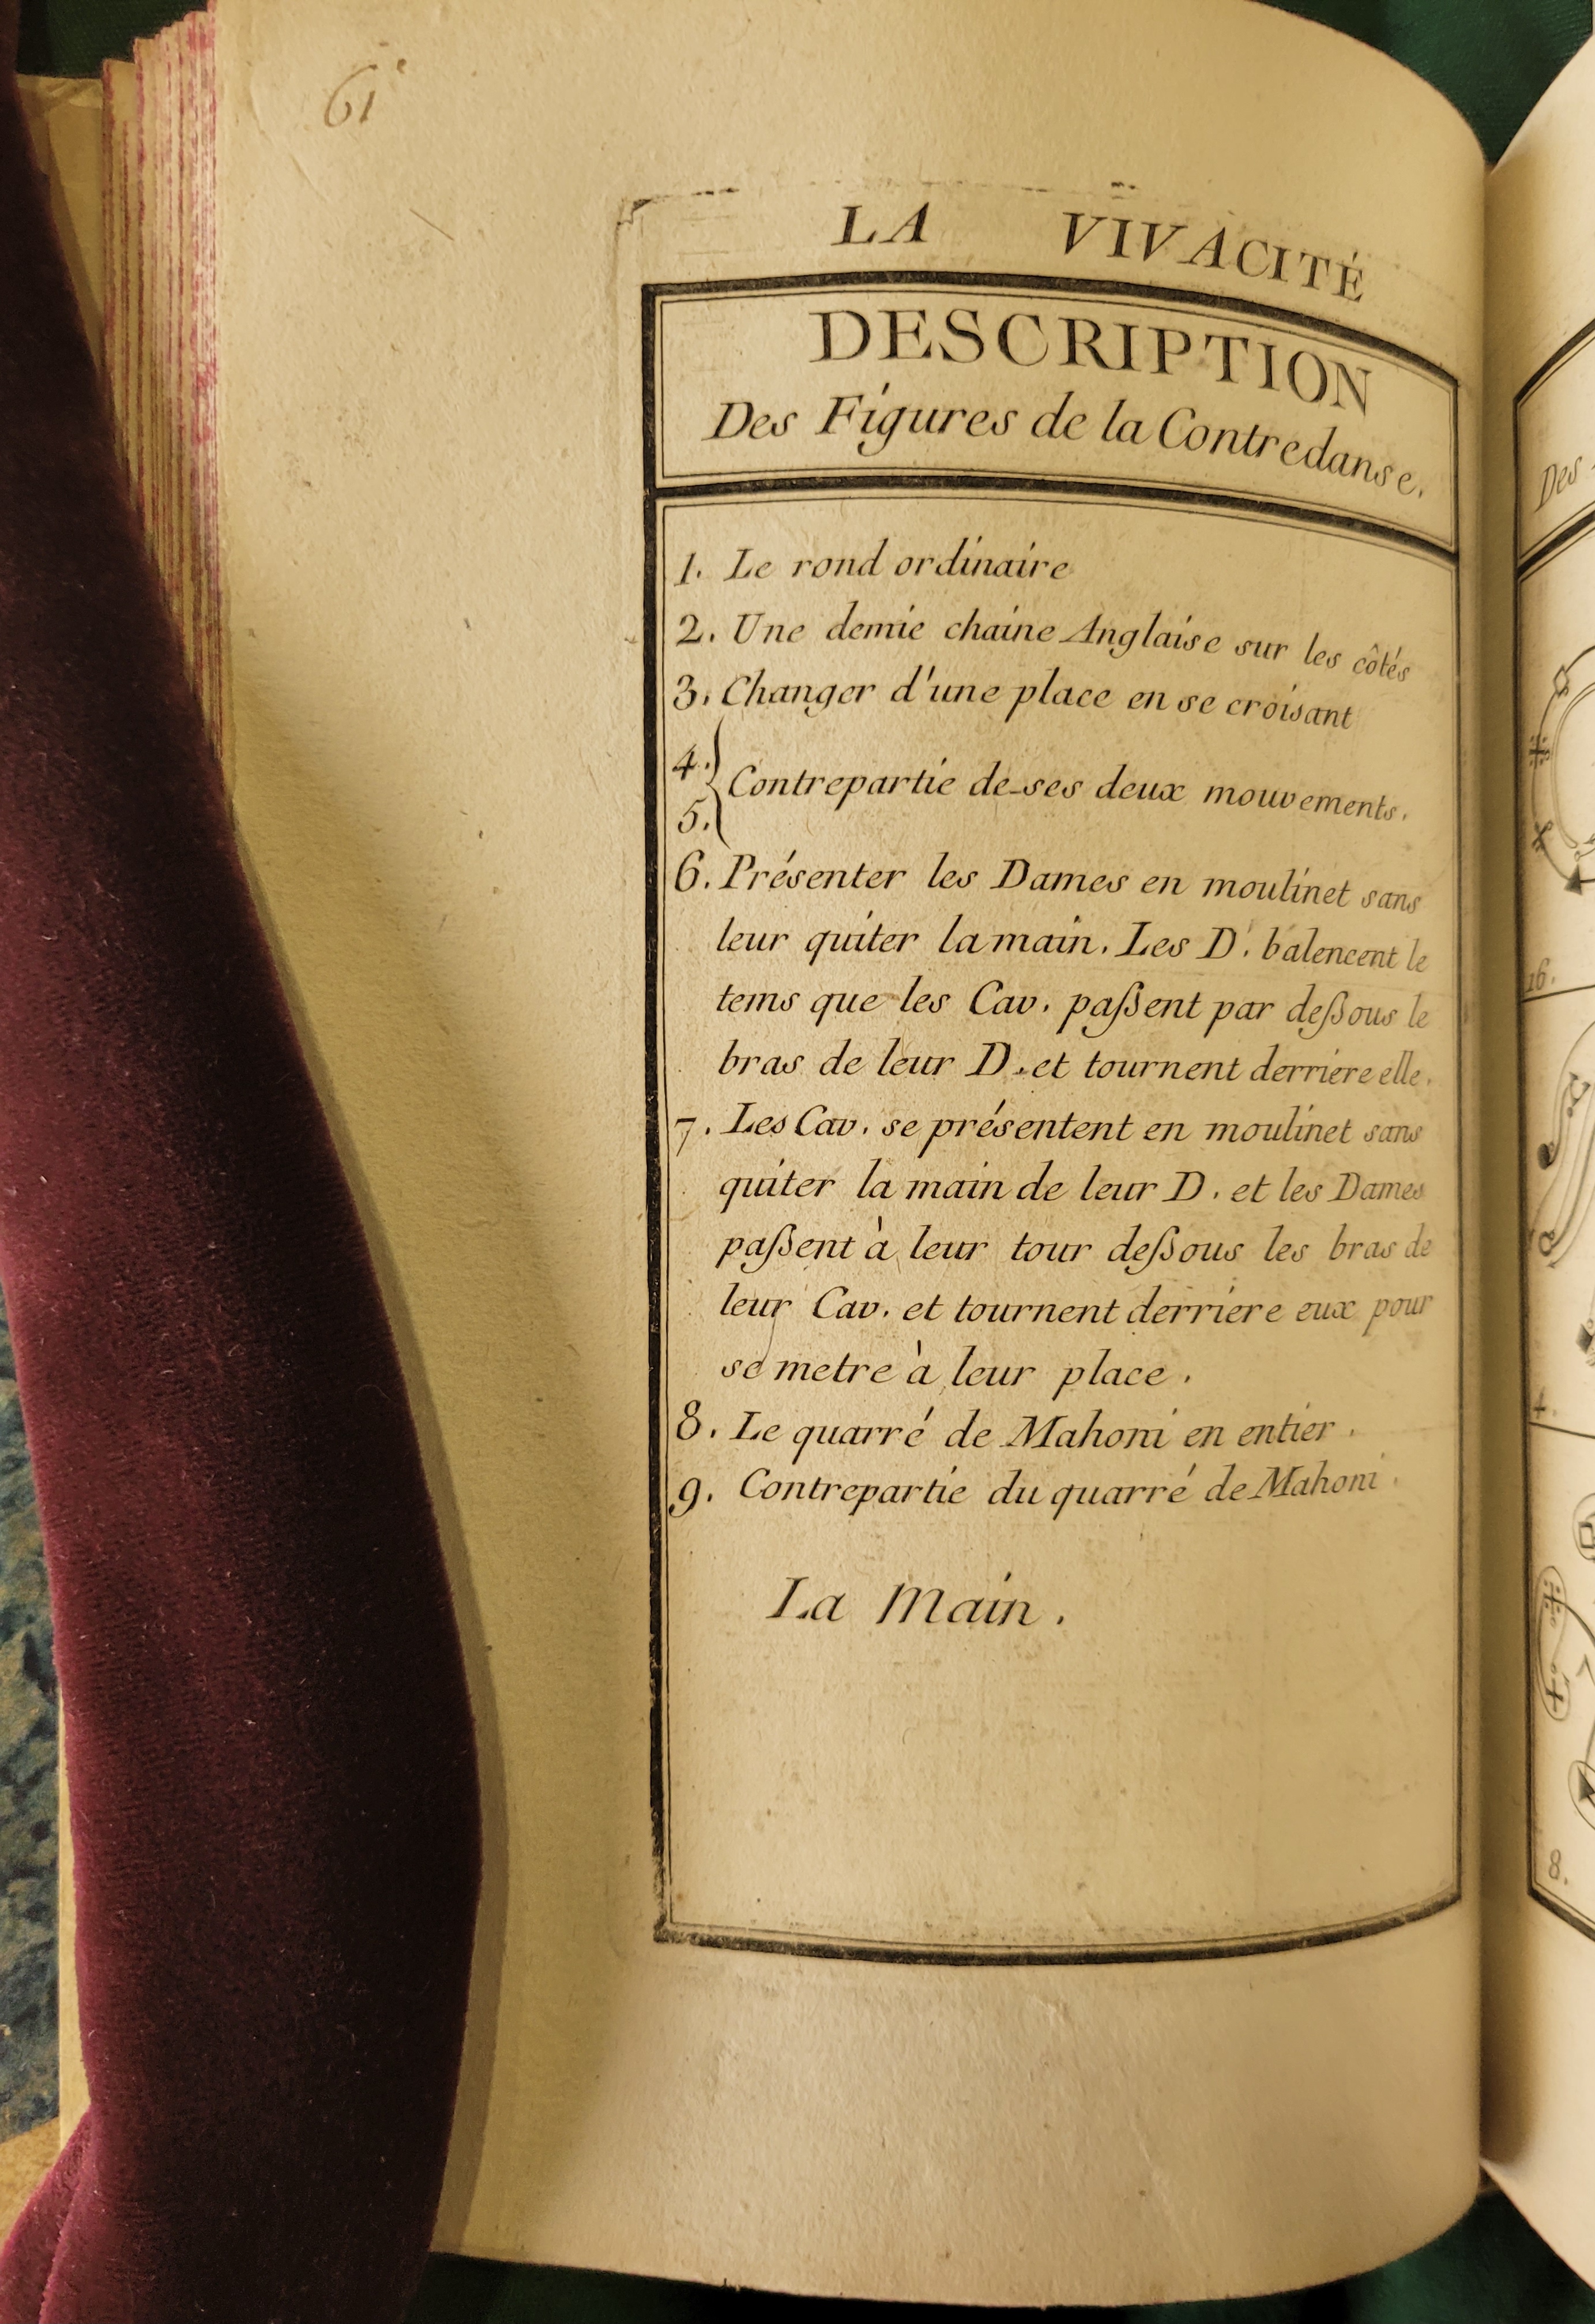 61
LA VIVACITÉ
DESCRIPTION
Des Figures de la Contredanse.
1. Le rond ordinaire
2. Une demie chaine Anglaise sur les côtés
3. Changer d'une place en se croisant
4.
Contrepartie de-ses deux mouvements.
5.
6. Présenter les Dames en moulinet sans
leur quiter la main. Les D. balencent le
tems que les Cav. paſsent par deſsous le
bras de leur D. et tournent derriere elle.
7. Les Cav. se présentent en moulinet sans
quiter la main de leur D. et les Dames
paſsent à leur tour deſsous les bras de
leur Cav. et tournent derriere eux pour
se metre à leur place.
8. Le quarré de Mahoni en entier.
9. Contrepartie du quarré de Mahoni.
La Main.
Des
16.
4.
8.